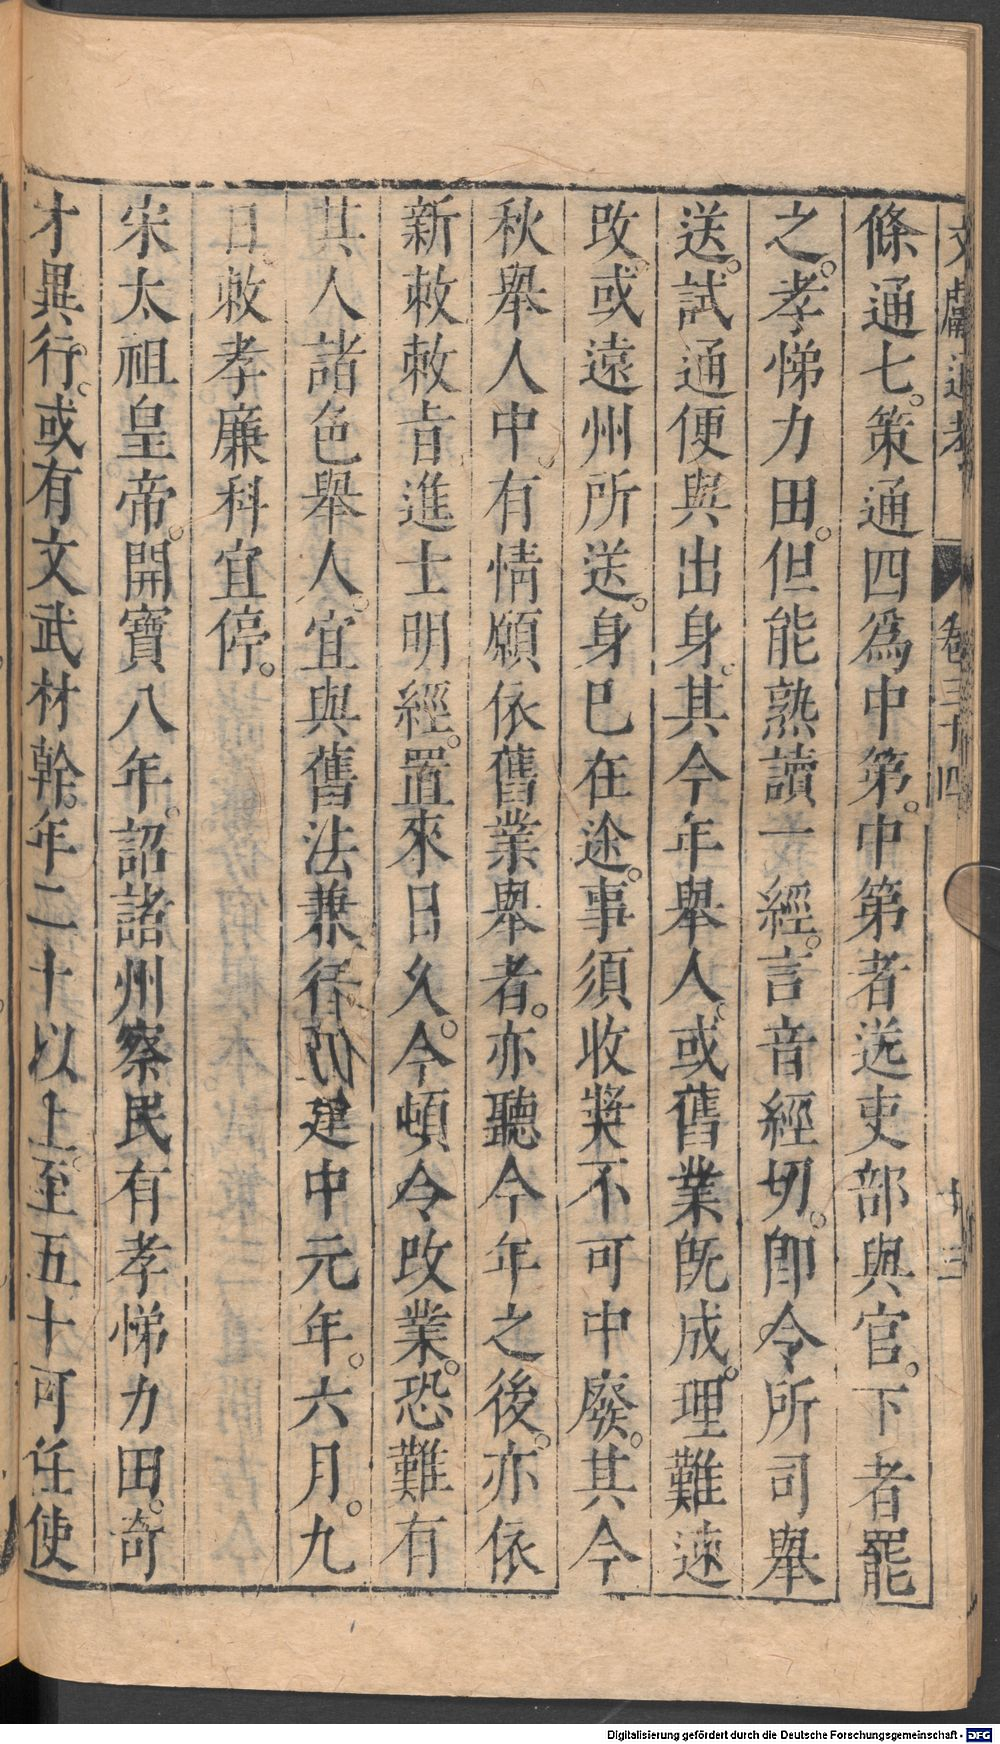 文獻通考 卷三十四 十三
條通七。策通四爲中第。中第者送吏部與官。下者罷
之。孝悌力田。但能熟讀一經。言音經切。卽令所司舉
送。試通便與出身。其今年舉人。或舊業旣成。理難速
改。或遠州所送。身已在途。事須收奬不可中廢。其今
秋舉人中。有情願依舊業舉者。亦聽今年之後。亦依
新敕敕旨進士明經。置來日久。今頓令改業。恐難有
其人諸色舉人。宜與舊法兼行 建中元年。六月。九
日。敕孝廉科宜停。
宋太祖皇帝。開寶八年。詔諸州察民有孝悌力田。奇
才異行。或有文武材幹。年二十以上。至五十可任使
Digitalisierung gefördert durch die Deutsche Forschungsgemeinschaft - DFG